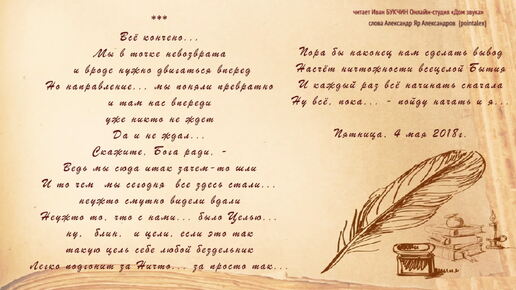 читает Иван БУКЧИН Онлайн-студия «Дом звука»
слова Александр Яр Александров (pointalex)
***
Всё кончено...
Мы в точке невозврата
и вроде нужно двигаться вперед
Но направление... мы поняли превратно
и там нас впереди
уже никто не ждет
Да и не ждал...
Скажите, Бога ради, -
Ведь мы сюда итак зачем-то шли
И то чем мы сегодня все здесь стали...
неужто смутно видели вдали
Неужто то, что с нами... было Целью...
ну, блин, и цели, если это так
такую цель себе любой бездельник
Легко подгонит за Ничто... за просто так...
Пора бы наконец нам сделать вывод
Насчёт ничтожности всецелой Бытия
И каждый раз всё начинать сначала
Ну всё, пока... - пойду начать и я...
Пятница, 4 мая 2018г.